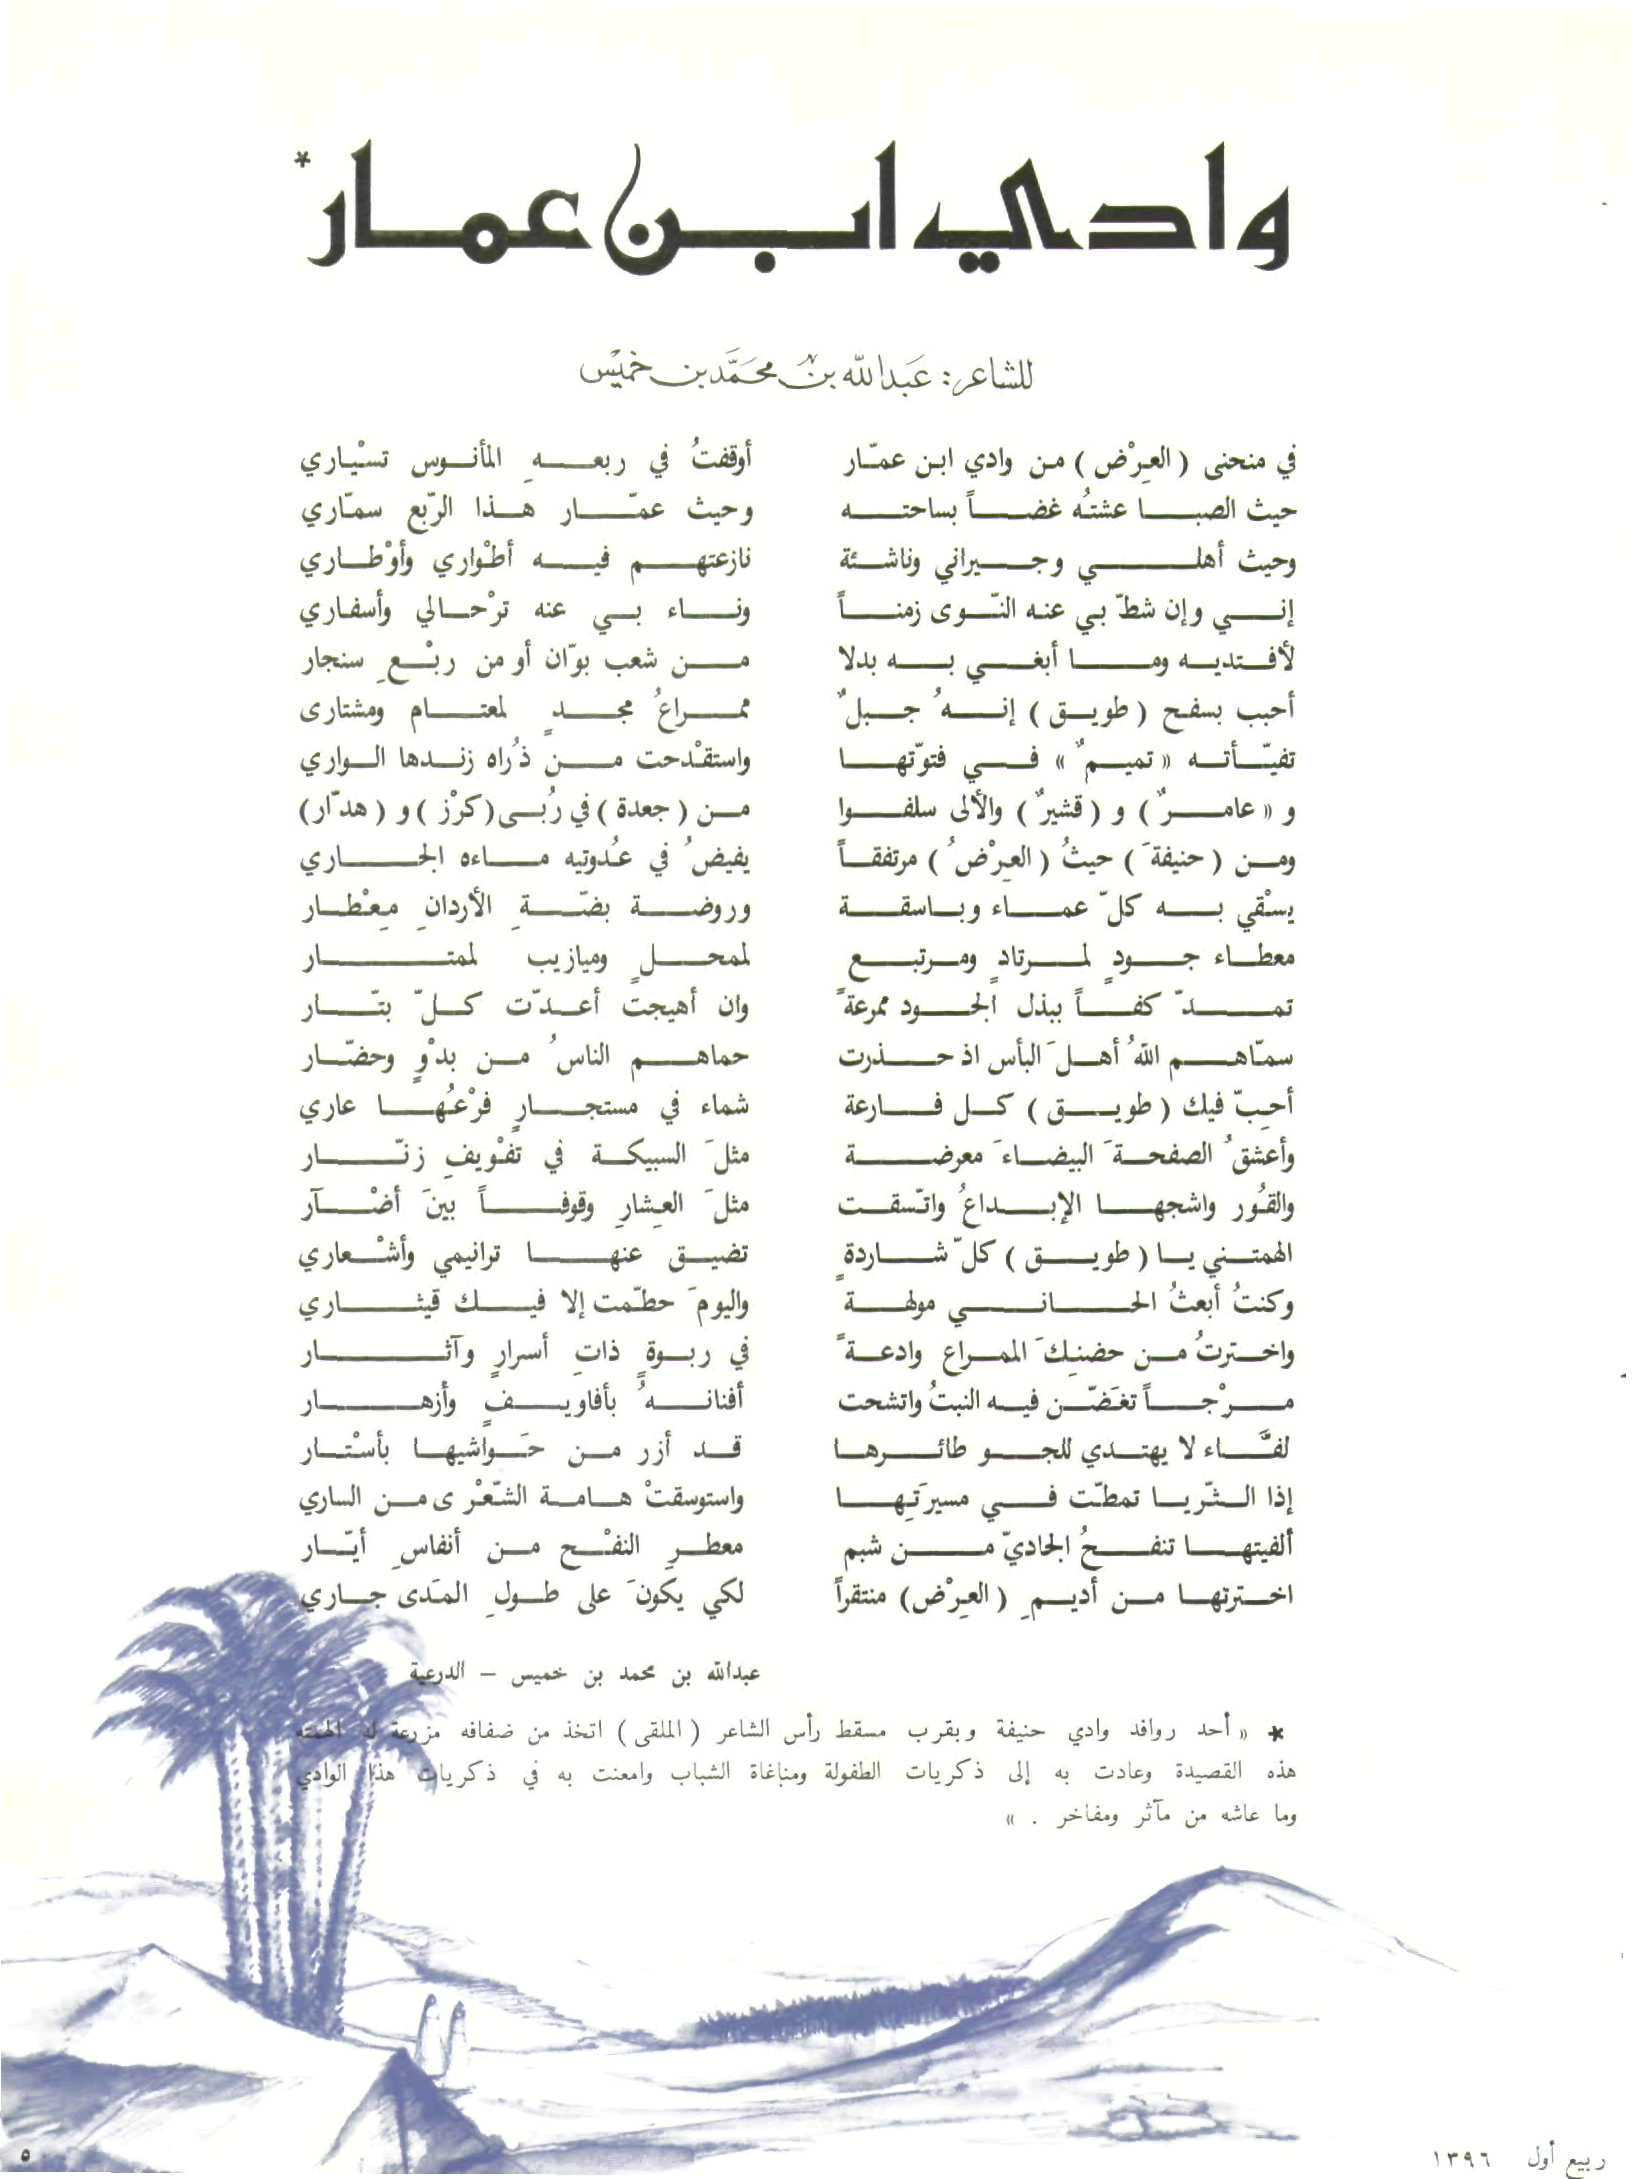 وادي ابن عمار*
للشاعر: عَبدالله بن محَمَّد بن خميْس
في منحنى (العِرْض) من وادي ابن عمّار أوقفتُ في ربعهِ المأنوس تسْياري
حيث الصبا عشتُه غضاً بساحته وحيث عمّار هذا الرّبع سمّاري
وحيث أهلي وجيراني وناشئة نازعتهم فيه أطْواري وأوْطاري
إني وإن شطّ بي عنه النّوى زمناً وناء بي عنه ترْحالي وأسفاري
لأفتديه وما أبغي به بدلا من شعب بوّان أو من ربْعِ سنجار
أحبب بسفح (طويق) إنهُ جبلٌ ممراعُ مجدٍ لمعتام ومشتارى
تفيّأته «تميمٌ» في فتوّتها واستقْدحت من ذُراه زندها الواري
و «عامرٌ) و (قشيرٌ) والألى سلفوا من (جعدة) في رُبى (كرْز) و (هدّار)
ومن (حنيفةَ) حيثُ (العِرْضُ) مرتفقاً يفيضُ في عُدوتيه ماءه الجاري
يسْقي به كلّ عماء وباسقة وروضة بضّةِ الأردانِ مِعْطار
معطاء جودٍ لمرتادٍ ومرتبع لممحلٍ وميازيب لممتار
تمدّ كفاً ببذل الجود ممرعةً وان أهيجت أعدّت كلّ بتّار
سمّاهم اللهُ أهلَ البأس اذ حذرت حماهم الناسُ من بدْوٍ وحضّار
أحِبّ فيك (طويق) كل فارعة شماء في مستجارٍ فرْعُها عاري
وأعشقُ الصفحةَ البيضاءَ معرضة مثلَ السبيكة في تفْويفِ زنّار
والقُور واشجها الإبداعُ واتّسقت مثلَ العِشارِ وقوفاً بينَ أضْآر
الهمتني يا (طويق) كلّ شاردةٍ تضيق عنها ترانيمي وأشْعاري
وكنتُ أبعثُ الحاني مولهةً واليومَ حطّمت إلا فيك قيثاري
واخترتُ من حضنِكَ الممراع وادعةً في ربوةٍ ذاتِ أسرارٍ وآثار
مرْجاً تغَضّن فيه النبتُ واتشحت أفنانهُ بأفاويفٍ وأزهار
لفَّاء لا يهتدي للجو طائرها قد أزر من حَواشيها بأسْتار
إذا الثّريا تمطّت في مسيرَتِها واستوسقتْ هامة الشّعْرى من الساري
ألفيتها تنفحُ الجاديّ من شبم معطرِ النفْح من أنفاسِ أيّار
اخترتها من أديمِ (العِرْض) منتقراً لكي يكونَ على طولِ المَدى جاري
عبدالله بن محمد بن خميس – الدرعية
* «أحد روافد وادي حنيفة وبقرب مسقط رأس الشاعر (الملقى) اتخذ من ضفافه مزرعة له الهمته
هذه القصيدة وعادت به إلى ذكريات الطفولة ومناغاة الشباب وامعنت به في ذكريات هذا الوادي
وما عاشه من مآثر ومفاخر . »
ربيع أول ١٣٩٦
٥